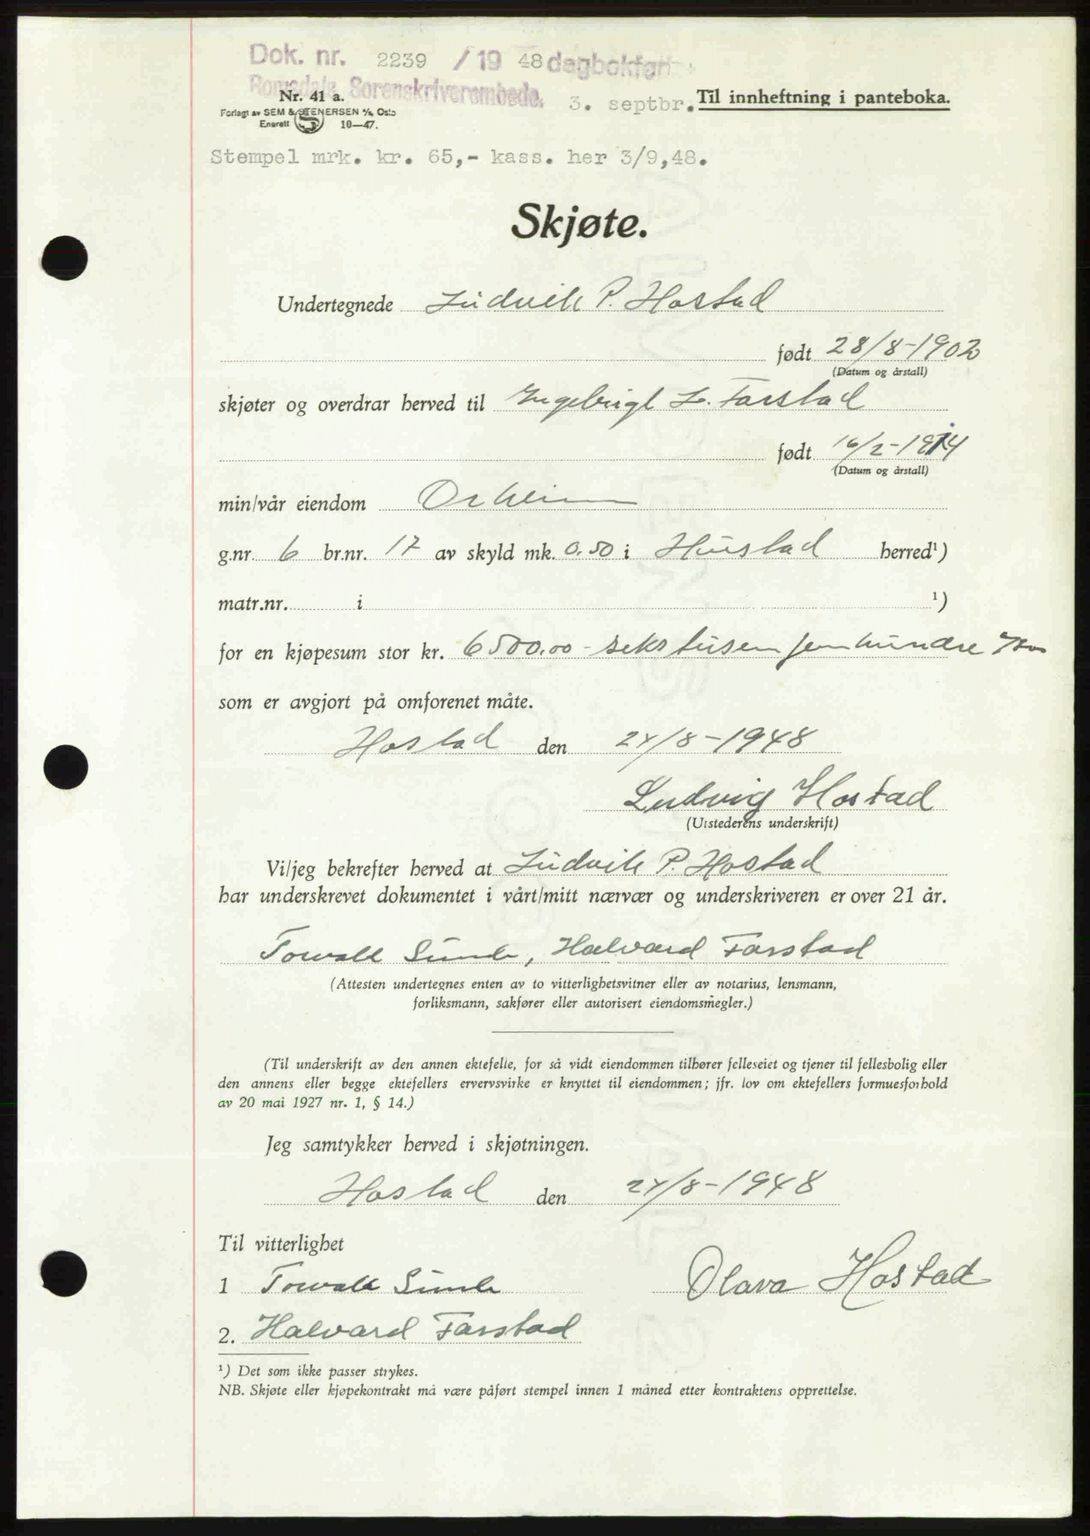 Dok. nr. 2239 / 19 48 dagbokført
Romsdals Sorenskriverembede. 3. septbr.
Nr. 41 a. Til innheftning i panteboka.
Forlagt av SEM & STENERSEN A/S, Oslo
Enerett 10—47.
Stempel mrk. kr. 65,- kass. her 3/9,48.
Skjøte.
Undertegnede Ludvik P. Hostad
født 28/8-1902
(Datum og årstall)
skjøter og overdrar herved til Ingebrigt L. Farstad
født 16/2-1914
(Datum og årstall)
min/vår eiendom Orheim
g.nr. 6 br.nr. 17 av skyld mk. 0.50 i Hustad herred¹)
matr.nr. i ¹)
for en kjøpesum stor kr. 6500.00 - sekstusen femhundre
som er avgjort på omforenet måte.
Hostad den 24/8-1948
Ludvig Hostad
(Utstederens underskrift)
Vi/jeg bekrefter herved at Ludvik P. Hostad
har underskrevet dokumentet i vårt/mitt nærvær og underskriveren er over 21 år.
Torvald Sunde, Halvard Farstad
(Attesten undertegnes enten av to vitterlighetsvitner eller av notarius, lensmann,
forliksmann, sakfører eller autorisert eiendomsmegler.)
(Til underskrift av den annen ektefelle, for så vidt eiendommen tilhører felleseiet og tjener til fellesbolig eller
den annens eller begge ektefellers ervervsvirke er knyttet til eiendommen; jfr. lov om ektefellers formuesforhold
av 20 mai 1927 nr. 1, § 14.)
Jeg samtykker herved i skjøtningen.
Hostad den 24/8-1948
Til vitterlighet
1 Torvald Sunde Olava Hostad
2. Halvard Farstad
¹) Det som ikke passer strykes.
NB. Skjøte eller kjøpekontrakt må være påført stempel innen 1 måned etter kontraktens opprettelse.